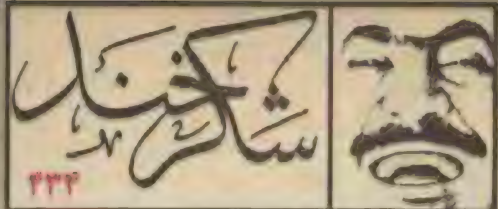 شکرخند
۴۳۴